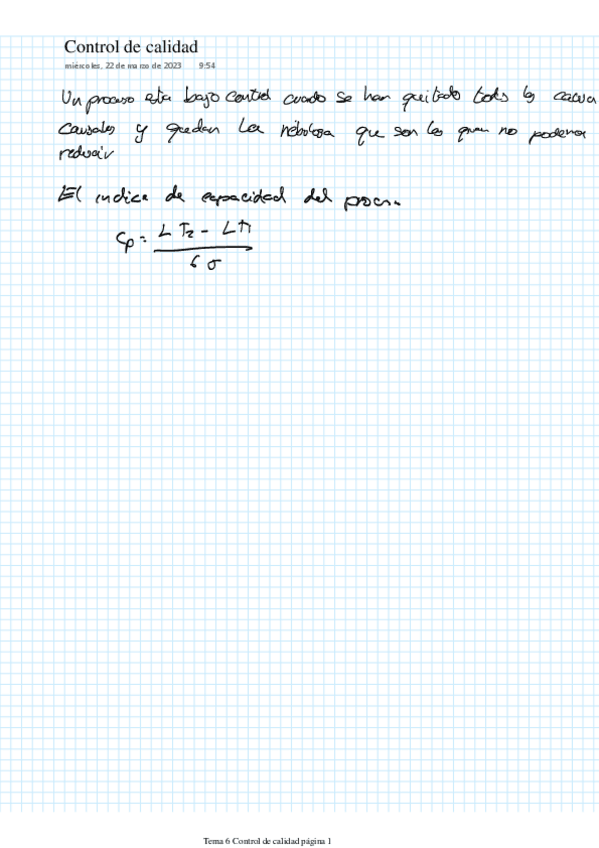 Control de calidad
miércoles, 22 de marzo de 2023 9:54
Un proceso esta bajo control cuando se han quitado tods las causa
causales y quedan la que son las que no podemos
reducir
El indice de capacidad del proces.
Cp = LT2 - LT1
6σ
Tema 6 Control de calidad página 1